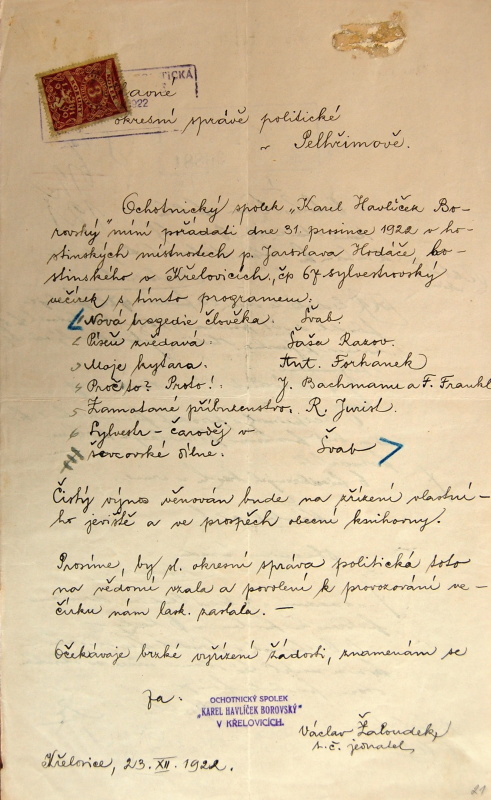 Slavné
okresní správě politické
v Pelhřimově.
Ochotnický spolek „Karel Havlíček Bo-
rovský" míní pořádati dne 31. prosince 1922 v ho-
stinských místnostech p. Jaroslava Hodáče, ho-
stinského v Křelovicích, čp 67 sylvestrovský
večírek s tímto programem:
1 Nová tragedie člověka. Šváb.
2 Píseň zvědavá. Saša Razov.
3 Moje kytara. Ant. Forhánek
4 Proč to? Proto!. J. Bachmann a F. Frankl
5 Zamotané příbuzenstvo. R. Jurist.
6 Sylvestr - čaroděj v
ševcovské dílně. Šváb
Čistý výnos věnován bude na zřízení vlastní-
ho jeviště a ve prospěch obecní knihovny.
Prosíme, by sl. okresní správa politická toto
na vědomí vzala a povolení k provozování ve-
čírku nám lask. zaslala. —
Očekávaje brzké vyřízení žádosti, znamenám se
Za:
OCHOTNICKÝ SPOLEK
„KAREL HAVLÍČEK BOROVSKÝ"
V KŘELOVICÍCH.
Václav Žaloudek,
t. č. jednatel,
Křelovice, 23. XII. 1922.
21